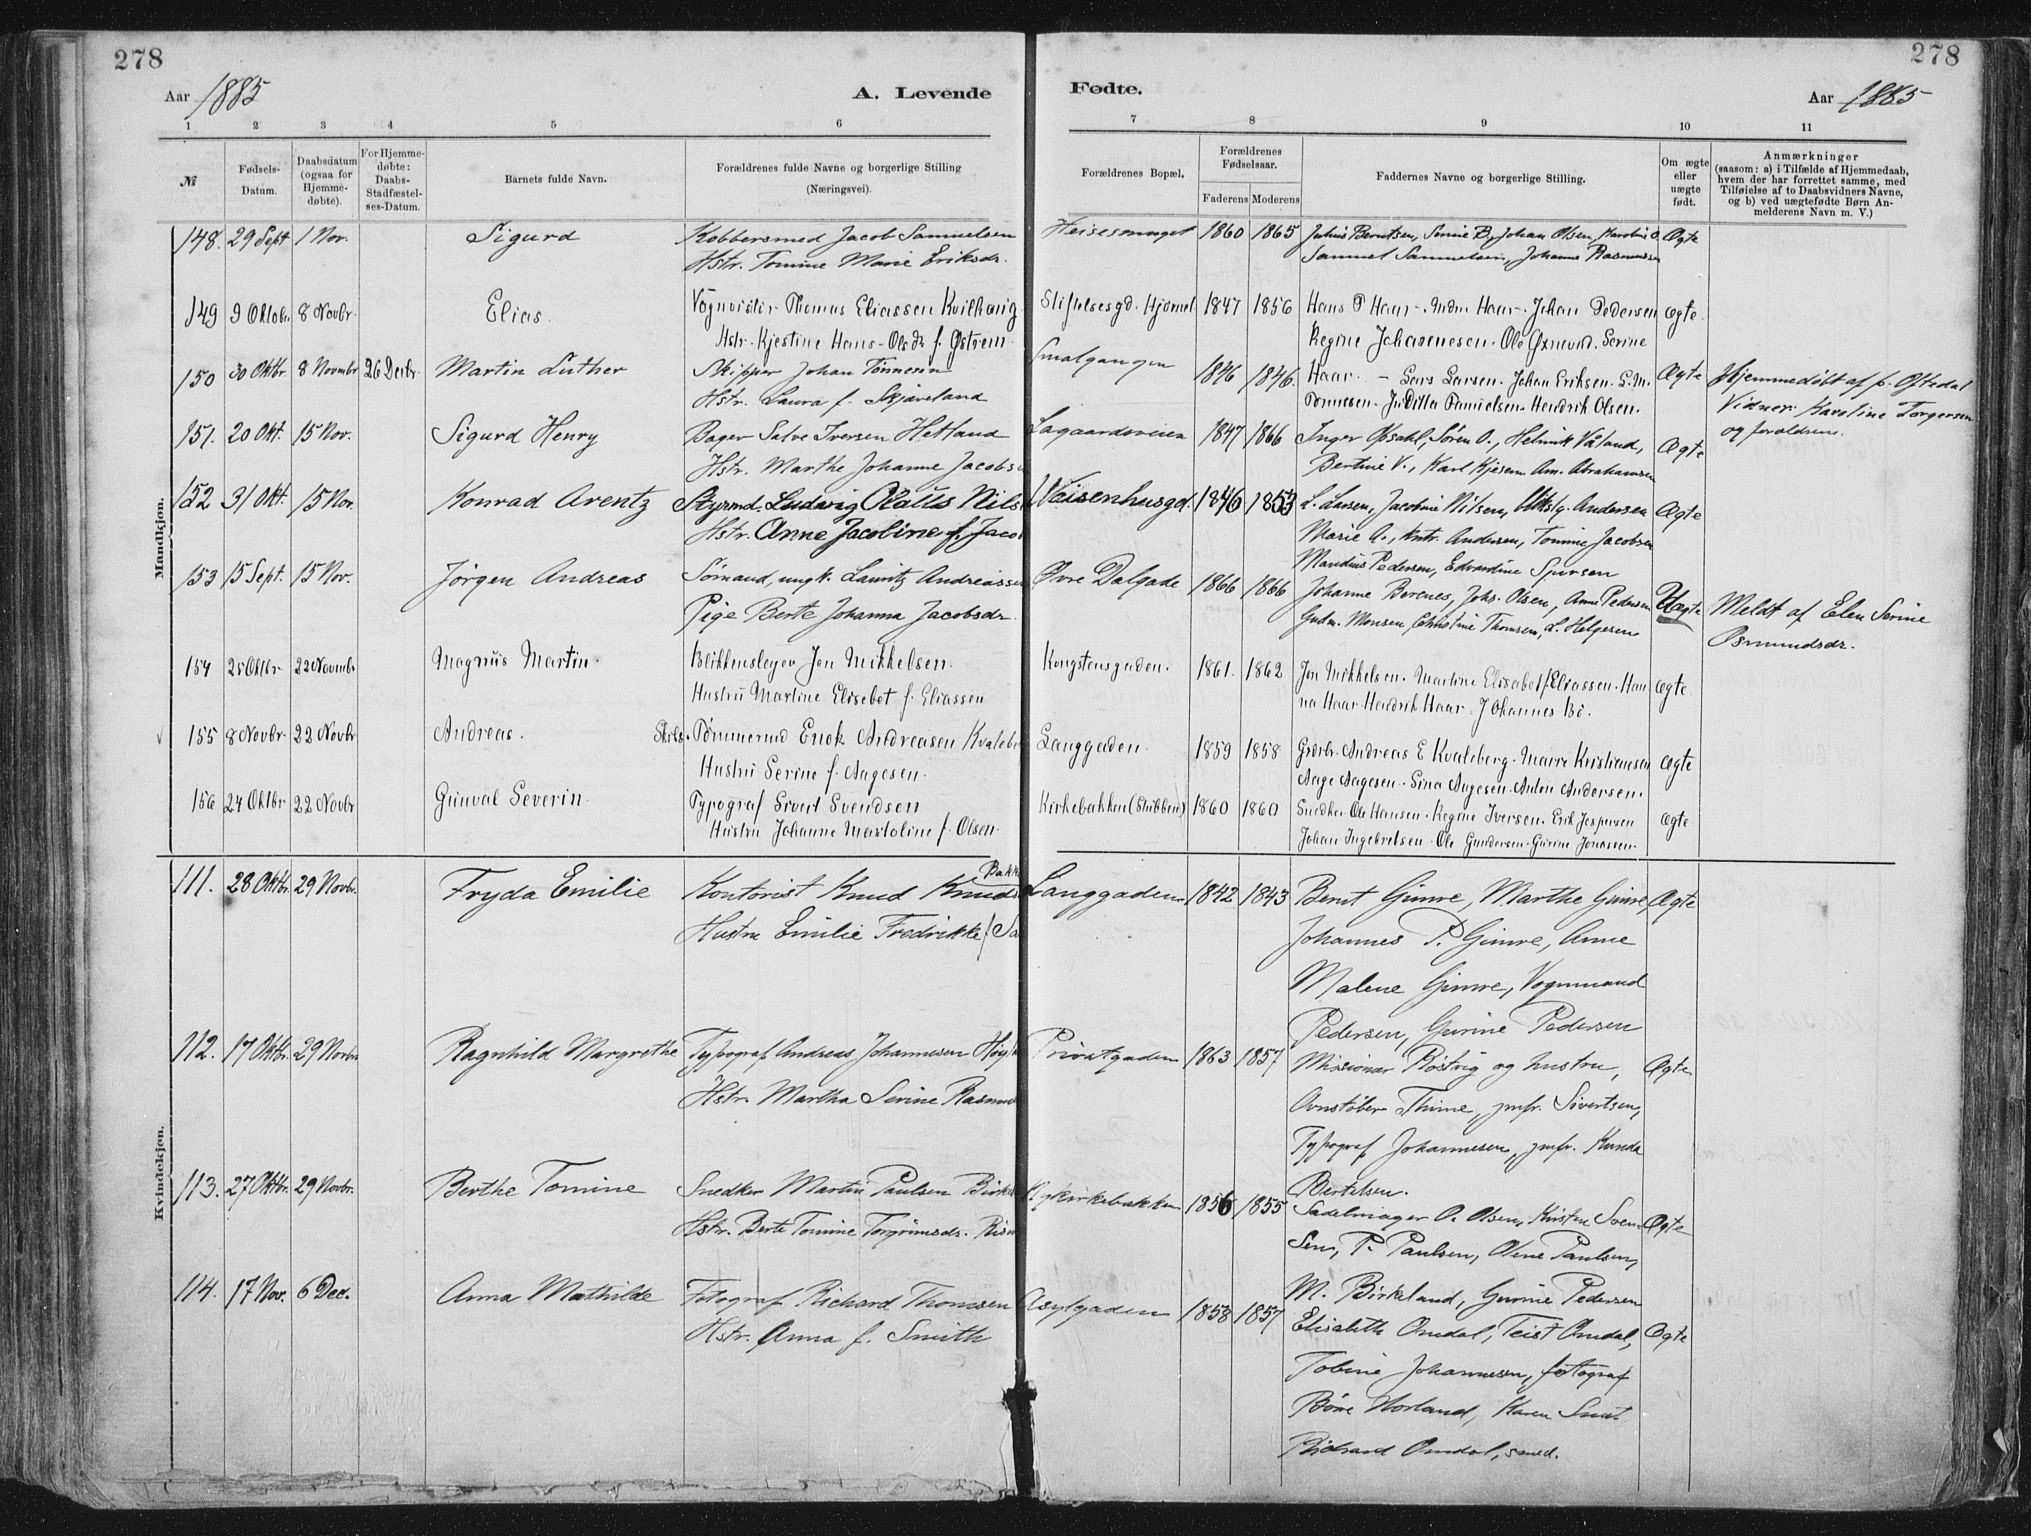 278
278
Aar 1885
A. Levende
Fødte.
Aar 1885
1 2 3 4 5 6 7 8 9 10 11
№
Fødsels-Datum.
Daabsdatum (ogsaa for Hjemme-døbte).
For Hjemme-døbte: Daabs-Stadfæstel-ses-Datum.
Barnets fulde Navn.
Forældrenes fulde Navne og borgerlige Stilling
(Næringsvei).
Forældrenes Bopæl.
Forældrenes Fødselsaar.
Faderens Moderens
Faddernes Navne og borgerlige Stilling.
Om ægte eller uægte født.
Anmærkninger
(saasom: a) i Tilfælde af Hjemmedaab,
hvem der har forrettet samme, med
Tilføielse af to Daabsvidners Navne,
og b) ved uægtefødte Børn An-
melderens Navn m. V.)
Mandkjøn.
148. 29 Sept 1 Nov. Sigurd Kobbersmed Jacob Samuelsen 1860 1865 Julius Berntsen, Serine B, Johan Olsen, Karoline O. Ægte
Hstr. Tomine Marie Eriksdr. Samuel Samuelsen, Johanne Rasmussen
149 9 Oktobr. 8 Novbr. Elias. Thomas Eliassen Stiftelsesgd. Hjørnet 1847 1856 Hans P Haar - Haar - Johan Pedersen ægte
Hstr. Kjestine Hans-Olsdr f. Østrem. Regine Johannesen. Ole Serine
150 30 Oktbr 8 Novembr 26 Decbr. Martin Luther Skipper Johan Tønnesen Smalgangen 1846 1846. Haar. - Lars Larsen. Johan Eriksen. S. M. Ægte Hjemmedøbt af p. Oftedal
Hstr. Laura f. Skjæveland Tønnesen. Juditta Danielsen. Hendrik Olsen. Vidner: Karoline Torgersen
og forældrene.
151. 20 Okt. 15 Nov. Sigurd Henry Bager Salve Iversen Hetland Lagaardsveien 1847 1866 Inger Opsahl, Søren O., Helmik Våland, Ægte
Hstr. Marthe Johanne Jacobs Bertine V., Karl Kjesem Am. Abrahamsen
152 31 Okt. 15 Nov. Konrad Arentz Styrmd. Ludvig Nils Veisenhusgd. 1846 1853 L. Larsen, Jacobine Nilsen, Andersen Ægte
Hstr. Anne Jacobine f. Jaco Marie A., Andersen, Tomine Jacobsen
153 15 Sept. 15 Nov. Jørgen Andreas Sømand, ungk. Lauritz Andreassen Øvre Dalgade 1866 1866 Mandius Pedersen, Edvardine Sjursen Uægte Meldt af Elen Serine
Pige Berte Johanna Jacobsdr. Johanne Berenes, Johs. Olsen, Anne Pedersen Osmundsdr.
Gudm. Monsen, Christine Thomsen, L. Helgesen
154 25 Oktbr. 22 Novembr Magnus Martin. Blikkenslager Jon Mikkelsen. Kongstensgaden. 1861. 1862 Jon Mikkelsen. Martine Elisabet f. Eliassen. Han- ægte
Hustru Martine Elisebet f. Eliassen na Haar Hendrik Haar. Johannes Bø.
155 8 Novbr. 22 Novbr Andreas. Tømmermd Enok Andreasen Kvaleb Langgaden. 1859 1858 Andreas E Kvaleberg. Marre Kristiansen ægte
Hustru Serine f. Aagesen. Aage Aagesen. Sina Aagesen. Anton Andersen.
156 24 Oktbr 22 Novbr Gunval Severin. Typograf Sivert Svendsen Kirkebakken (Stribben) 1860 1860 Snedker Ole Hansen. Regine Iversen. Erik Jespersen ægte
Hustru Johanne Mastoline f. Olsen. Johan Ingebretsen. Ole Gundersen. Gurine Jonassen.
Kvindekjøn.
111. 28 Oktbr. 29 Novbr. Fryda Emilie Kontorist Knud Knuds Bakk Langgaden 1842 1843 Bernt Gimre, Marthe Gimre, Ægte
Hustru Emilie Fredrikke f. Sa Johannes P. Gimre, Anne
Malene Gimre, Vognmand
Pedersen, Gurine Pedersen
112. 17 Oktbr. 29 Novbr Ragnhild Margrethe Typograf Andreas Johannesen Høy Privatgaden 1863 1857 Missionær Røstvig og hustru, Ægte
Hstr. Martha Serine Rasmu Ovnstøber Thime, jmfr. Sivertsen,
Typograf Johannesen, jmfr. Kunda
Bertelsen.
113. 27 Oktbr. 29 Novbr. Berthe Tomine Snedker Martin Paulsen Birkel Nykirkebakken 1856 1855 Sadelmager O. Olsen, Kirsten Sven- Ægte
Hstr. Berte Tomine Torgrimsdr. sen, P. Paulsen, Oline Paulsen,
M. Birkeland, Gurine Pedersen
114. 17 Nov. 6 Dec. Anna Mathilde Fotograf Richard Thomsen Asylgaden 1858 1857 Elisabeth Omdal, Teist Omdal, Ægte
Hstr. Anna f. Smith Tobine Johannesen, fotograf
Børe Norland, Karen Smit
Richard Omdal, smed.